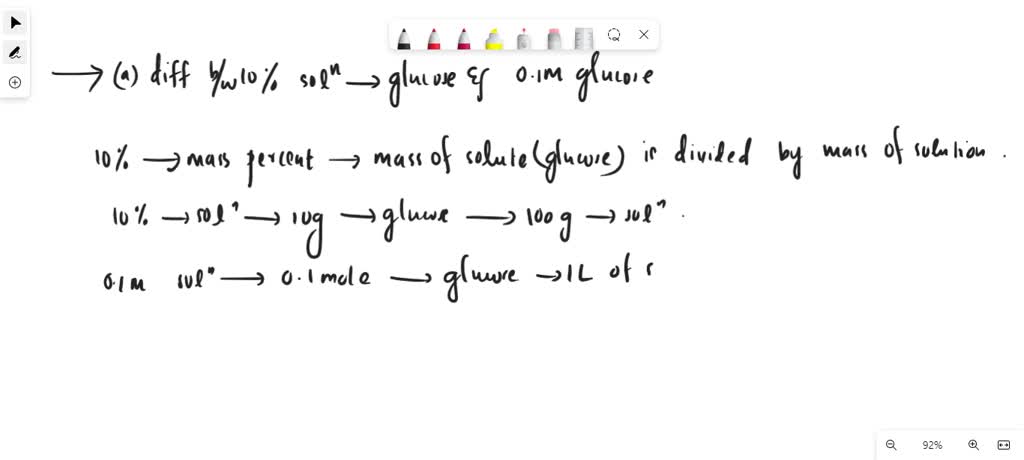 → (a) diff b/w 10% solⁿ → glucose & 0.1M glucose
10% → mass percent → mass of solute (glucose) is divided by mass of solution.
10% → solⁿ → 10g → glucose → 100g → solⁿ.
0.1M solⁿ → 0.1 mole → glucose → 1L of s
92%